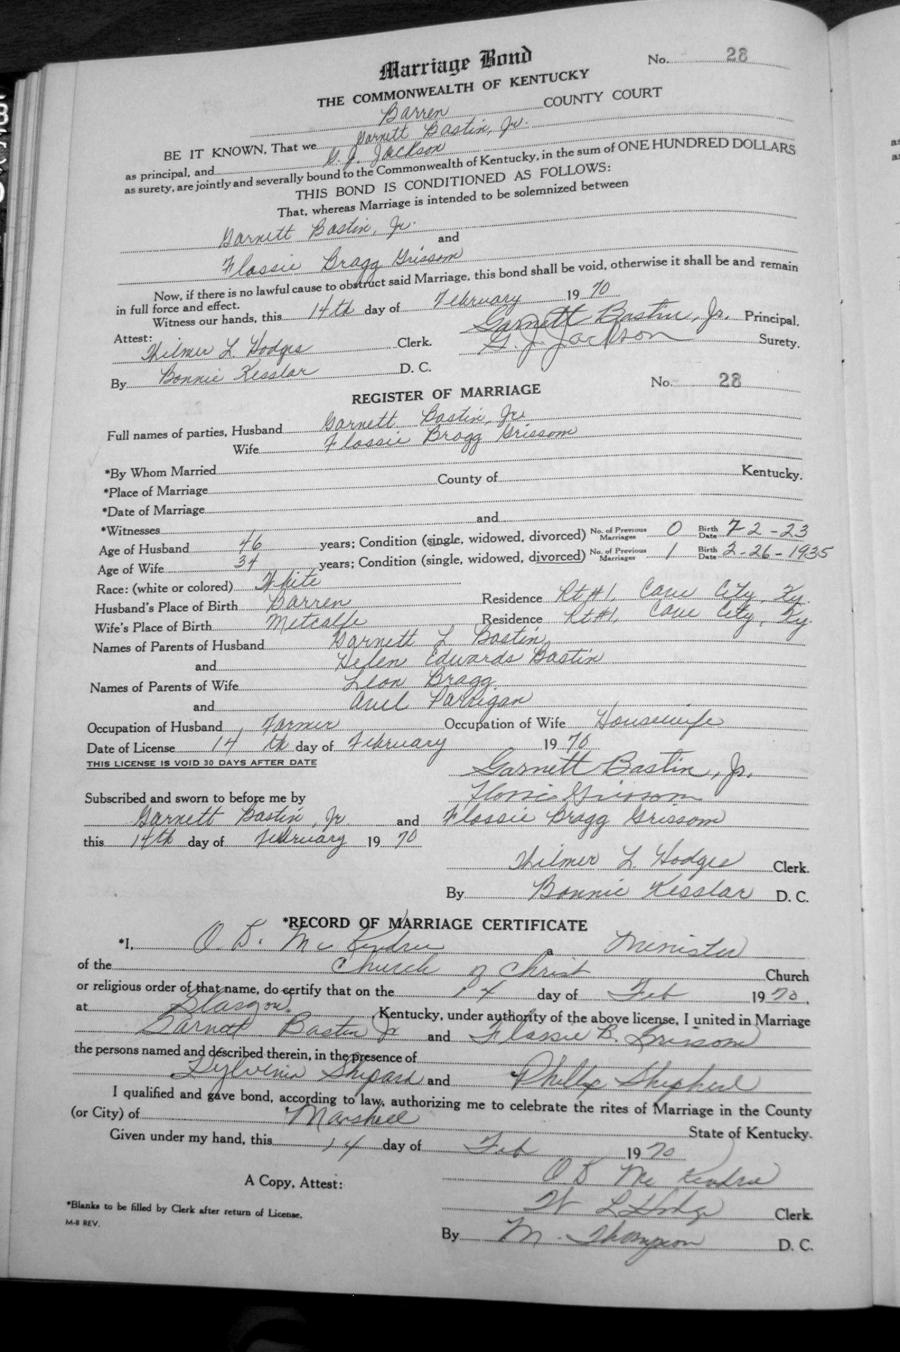 Marriage Bond No. 28
THE COMMONWEALTH OF KENTUCKY
Barren COUNTY COURT
BE IT KNOWN, That we Garnett Bastin, Jr.
as principal, and G. J. Jackson
as surety, are jointly and severally bound to the Commonwealth of Kentucky, in the sum of ONE HUNDRED DOLLARS
THIS BOND IS CONDITIONED AS FOLLOWS:
That, whereas Marriage is intended to be solemnized between
Garnett Bastin, Jr.
and
Flossie Bragg Grissom
Now, if there is no lawful cause to obstruct said Marriage, this bond shall be void, otherwise it shall be and remain
in full force and effect.
Witness our hands, this 14th day of February 1970
Garnett Bastin, Jr. Principal.
Attest:
Wilmer L Hodges Clerk. G. J. Jackson Surety.
By Bonnie Kesslar D. C.
REGISTER OF MARRIAGE No. 28
Full names of parties, Husband Garnett Bastin, Jr.
Wife Flossie Bragg Grissom
*By Whom Married
*Place of Marriage County of Kentucky.
*Date of Marriage
*Witnesses and
Age of Husband 46 years; Condition (single, widowed, divorced) No. of Previous Marriages 0 Birth Date 7-2-23
Age of Wife 34 years; Condition (single, widowed, divorced) No. of Previous Marriages 1 Birth Date 2-26-1935
Race: (white or colored) White
Husband's Place of Birth Barren Residence Rt#1, Cave City, Ky.
Wife's Place of Birth Metcalfe Residence Rt#1, Cave City, Ky.
Names of Parents of Husband Garnett L Bastin
and Helen Edwards Bastin
Names of Parents of Wife Leon Bragg
and Pa
Occupation of Husband Farmer Occupation of Wife Housewife
Date of License 14 th day of February 1970
THIS LICENSE IS VOID 30 DAYS AFTER DATE
Garnett Bastin, Jr.
Flossie Grissom
Subscribed and sworn to before me by
Garnett Bastin, Jr. and Flossie Bragg Grissom
this 14th day of February 1970
Wilmer L. Hodges Clerk.
By Bonnie Kesslar D. C.
*RECORD OF MARRIAGE CERTIFICATE
*I, O. D. McKendree a Minister
of the Church of Christ Church
or religious order of that name, do certify that on the 14 day of Feb 1970,
at Glasgow, Kentucky, under authority of the above license, I united in Marriage
Garnat Bastin Jr and Flossie B. Grissom
the persons named and described therein, in the presence of
Sylvenia Shipard and Phillip Shepherd
I qualified and gave bond, according to law, authorizing me to celebrate the rites of Marriage in the County
(or City) of Marshall State of Kentucky.
Given under my hand, this 14 day of Feb 1970
O D McKendree
A Copy, Attest:
W L Hodge Clerk.
*Blanks to be filled by Clerk after return of License.
M-8 REV.
By M. Thompson D. C.